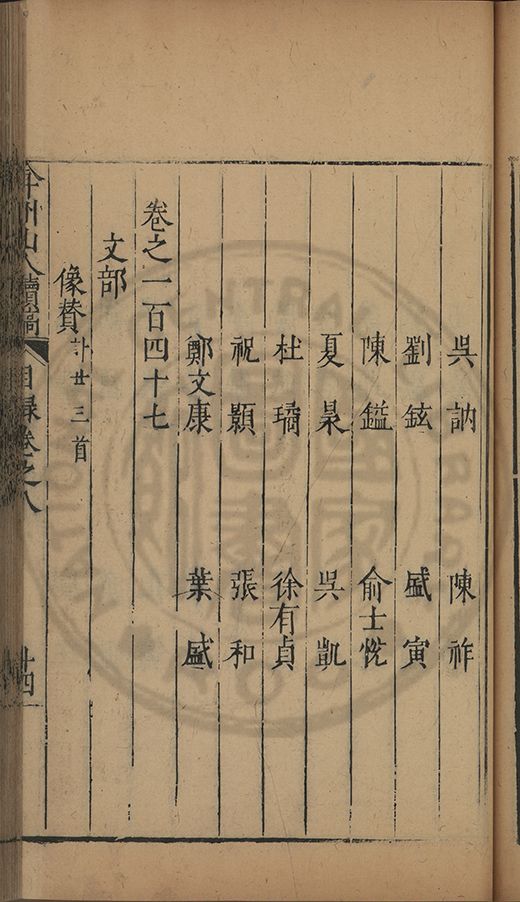 吳訥 陳祚
劉鉉 盛寅
陳鎰 俞士悅
夏昃 吳凱
杜瓊 徐有貞
祝顥 張和
鄭文康 葉盛
卷之一百四十七
文部
像贊計廿三首
弇州山人續稿 目錄卷之八 廿四